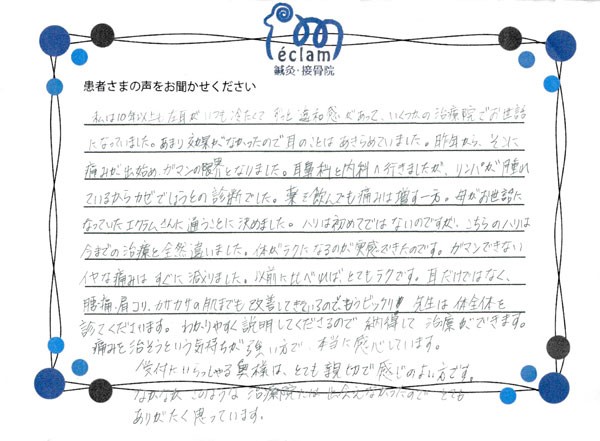 éclam
鍼灸・接骨院
患者さまの声をお聞かせください
私は10年以上も左耳がいつも冷たくて ずっと違和感があって、いくつかの治療院でお世話
になっていました。あまり効果がなかったので耳のことはあきらめていました。昨年から、そこに
痛みが出始め、ガマンの限界となりました。耳鼻科と内科へ行きましたが、リンパが腫れ
ているからカゼでしょうとの診断でした。薬を飲んでも痛みは増す一方。母がお世話に
なっていたエクラムさんに通うことに決めました。ハリは初めてではないのですが、こちらのハリは
今までの治療と全然違いました。体がラクになるのが実感できたのです。ガマンできない
イヤな痛みはすぐに減りました。以前に比べれば、とてもラクです。耳だけではなく、
腰痛、肩コリ、カサカサの肌までも改善してきているのでもうビックリ!! 先生は体全体を
診てくださいます。わかりやすく説明してくださるので納得して治療ができます。
痛みを治そうという気持ちが強い方で、本当に感心しています。
受付にいらっしゃる奥様は、とても親切で感じのよい方です。
なかなかこのような治療院には出会えなかったので とても
ありがたく思っています。